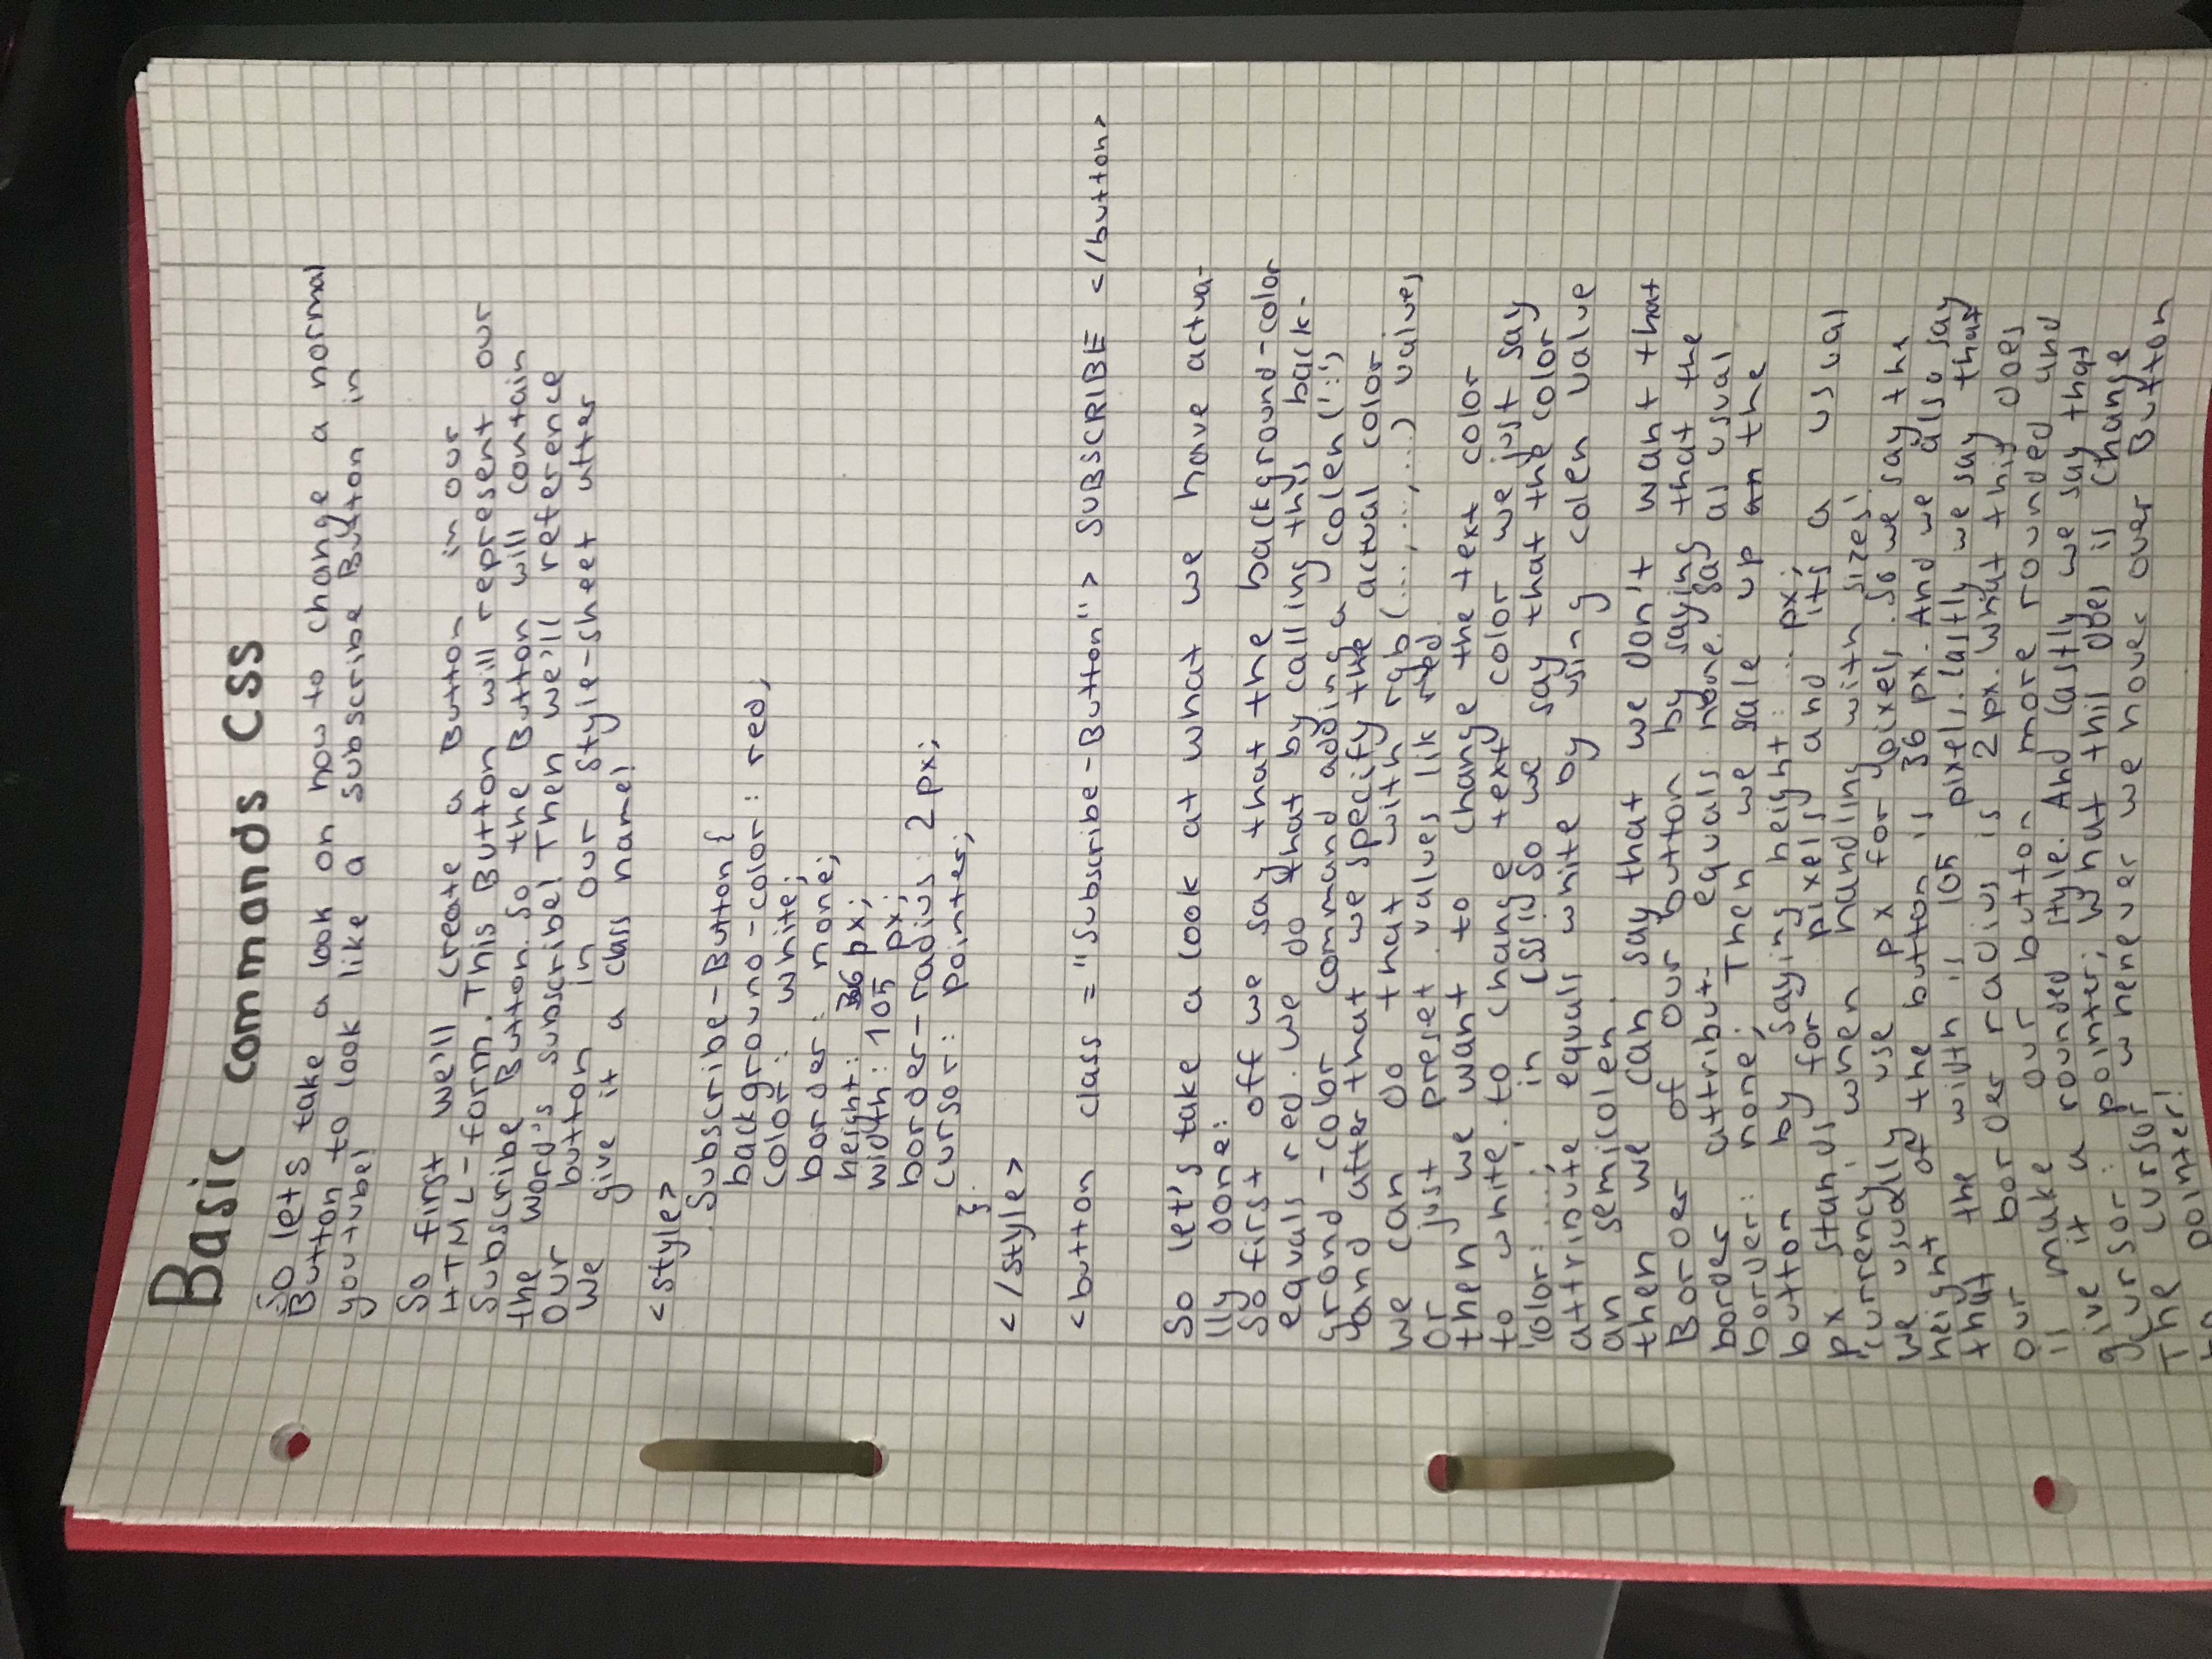 Basic commands CSS
So lets take a look on how to change a normal
Button to look like a subscribe Button in
youtube!
So first we'll create a Button in our
HTML-form. This Button will represent our
Subscribe Button. So the Button will contain
the word's subscribe! Then we'll reference
our button in our style-sheet after
we give it a class name!
<style>
.Subscribe-Button {
background-color: red;
color: white;
border: none;
height: 36 px;
width: 105 px;
border-radius: 2 px;
cursor: pointer;
}
</style>
<button class = "Subscribe-Button"> SUBSCRIBE </button>
So let's take a look at what we have actua-
lly done:
So first off we say that the background-color
equals red. We do that by calling this back-
grond-color command adding a colen (':')
and after that we specify the actual color.
we can do that with rgb(...,...,...) values
or just preset values lik red.
then we want to change the text color
to white. to change text color we just say
'color: ...;' in CSS!! So we say that the color
attribute equals white by using colen value
an semicolen.
then we can say that we don't want that
Border of our button by saying that the
border attribut equals none. as usual
border: none; Then we sale up the
button by saying height: ... px;
px stands for pixels and its a usual
'currency' when handling with sizes!
we usually use px for pixels. So we say the
height of the button is 36 px. And we also say
that the width is 105 pixels. lastly we say that
our border radius is 2 px. What this does
is make our button more rounded and
give it a rounded style. And lastly we say that
cursor: pointer; What this does is change
The cursor whenever we hover over Button
to pointer!